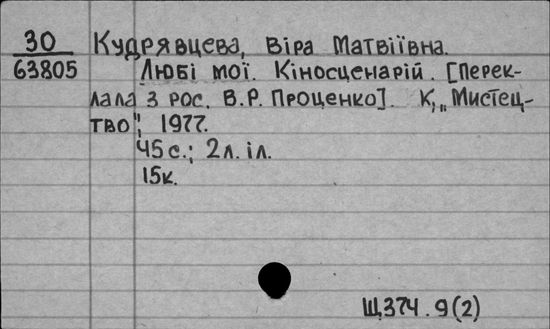 30 Кудрявцева, Віра Матвіївна.
63805 Любі мої. Кіносценарій. [Перек-
лала з рос. В.Р. Проценко]. К., „Мистец-
тво", 1977.
45 с.; 2 л. іл.
15к.
Щ374.9(2)